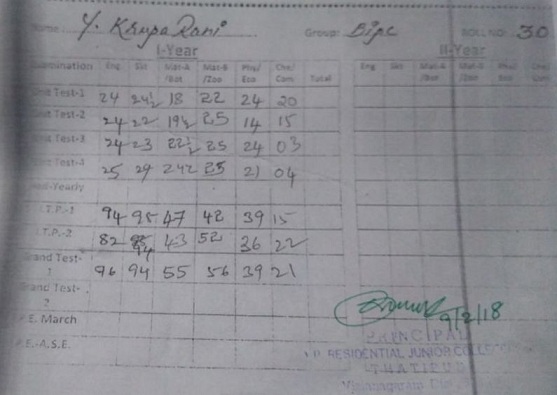 Name Y. Krupa Rani Group: Bipc ROLL NO: 30
I-Year II-Year
Examination Eng Skt Mat-A /Bot Mat-B /Zoo Phy/ Eco Che/ Com Total Eng Skt Mat-A /Bot Mat-B /Zoo
Unit Test-1 24 24½ 18 22 24 20
Unit Test-2 24 22 19½ 25 14 15
Unit Test-3 24 23 22½ 25 24 03
Unit Test-4 25 24½ 25 21 04
-Yearly
I.T.P.-1 94 95 47 42 39 15
I.T.P.-2 82 94 43 52 36 22
Grand Test-1 96 94 55 56 39 21
Grand Test-2
P.E. March 9/2/18
P.E.-A.S.E.
PRINCIPAL
RESIDENTIAL JUNIOR COLLEGE
THATIPUDI
Vizianagaram